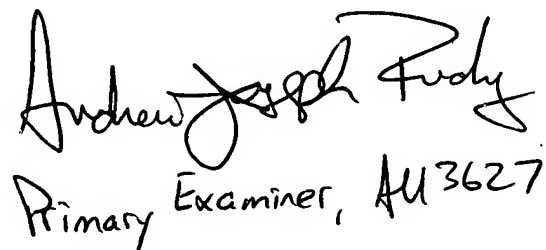 Andrew Joseph Rudy
Primary Examiner, AU 3627